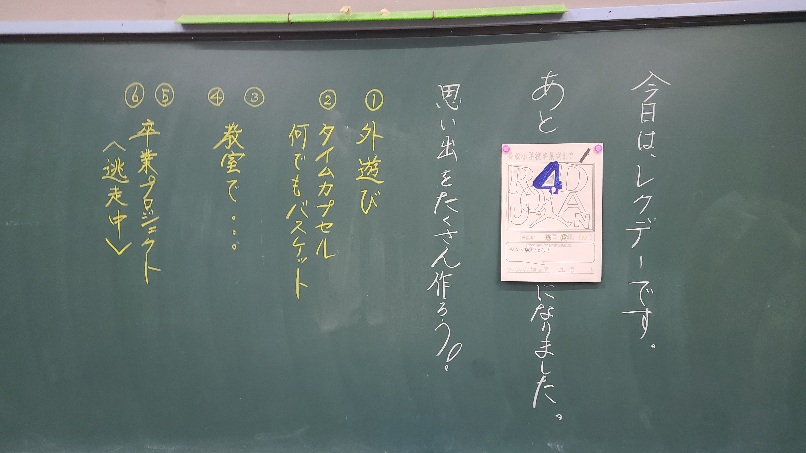 今日は、レクデーです。
あと
4
になりました。
思い出をたくさん作ろう!
① 外遊び
② タイムカプセル
何でもバスケット
③ ④ 教室で・・・
⑤ ⑥ 卒業プロジェクト
<逃走中>